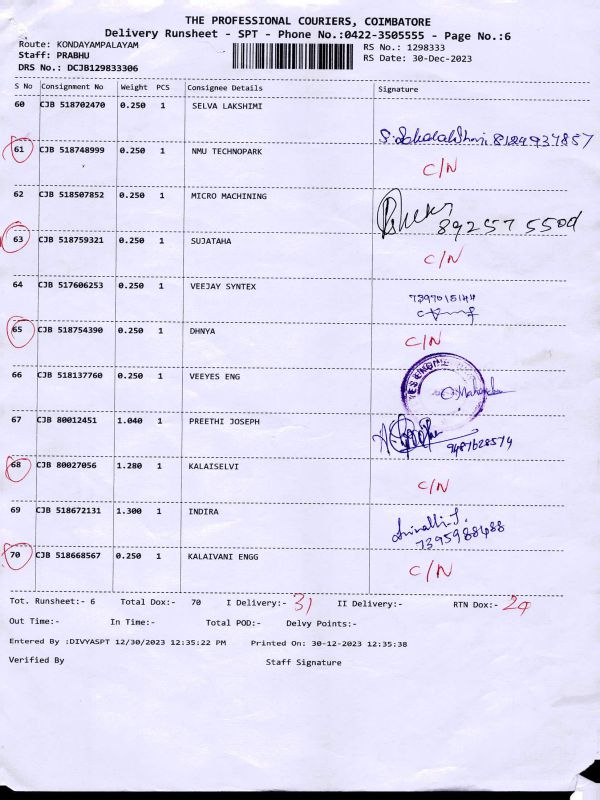 THE PROFESSIONAL COURIERS, COIMBATORE
Delivery Runsheet - SPT - Phone No.:0422-3505555 - Page No.:6
Route: KONDAYAMPALAYAM RS No.: 1298333
Staff: PRABHU RS Date: 30-Dec-2023
DRS No.: DCJB129833306
S No Consignment No Weight PCS Consignee Details Signature
60 CJB 518702470 0.250 1 SELVA LAKSHIMI
8124937857
61 CJB 518748999 0.250 1 NMU TECHNOPARK C/N
62 CJB 518507852 0.250 1 MICRO MACHINING
892575500
63 CJB 518759321 0.250 1 SUJATAHA C/N
64 CJB 517606253 0.250 1 VEEJAY SYNTEX
65 CJB 518754390 0.250 1 DHNYA C/N
66 CJB 518137760 0.250 1 VEEYES ENG
67 CJB 80012451 1.040 1 PREETHI JOSEPH
9487628574
68 CJB 80027056 1.280 1 KALAISELVI C/N
69 CJB 518672131 1.300 1 INDIRA
7395988488
70 CJB 518668567 0.250 1 KALAIVANI ENGG C/N
Tot. Runsheet:- 6 Total Dox:- 70 I Delivery:- 31 II Delivery:- RTN Dox:- 29
Out Time:- In Time:- Total POD:- Delvy Points:-
Entered By :DIVYASPT 12/30/2023 12:35:22 PM Printed On: 30-12-2023 12:35:38
Verified By Staff Signature